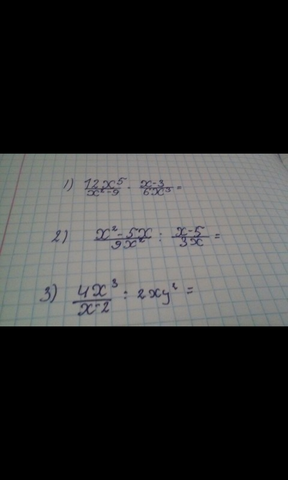 1) \frac{12x^5}{x^2-9} \cdot \frac{x-3}{6x^3} =
2) \frac{x^2-5x}{9x^2} : \frac{x-5}{3x} =
3) \frac{4x^3}{x-2} : 2xy^2 =